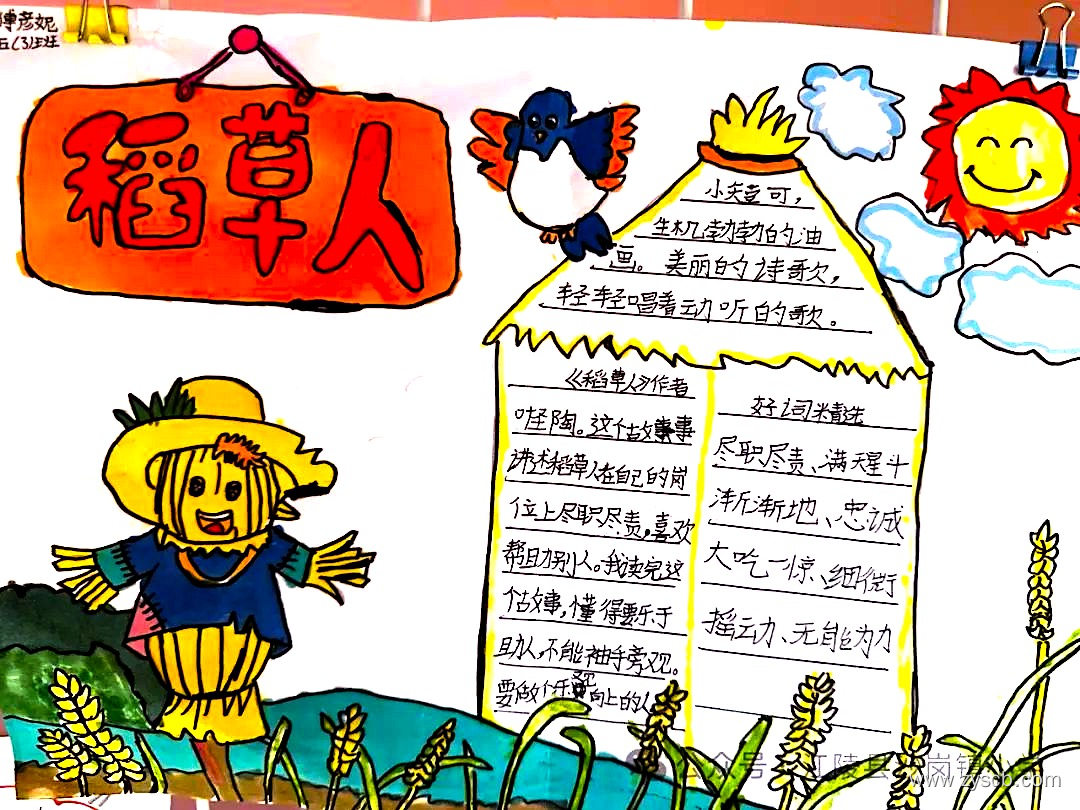 彦妮
五(3)班
稻草人
小矢壹可，
生机勃勃的油
画。美丽的诗歌，
轻轻唱着动听的歌。
《稻草人》作者
叶圣陶。这个古故事事
讲述稻草人在自己的岗
位上尽职尽责，喜欢
帮助别人。我读完这
个故事，懂得要乐于
助人，不能袖手旁观。
要做个乐观向上的人
好词精选
尽职尽责、满天星斗
渐渐地、忠诚
大吃一惊、细微
摇动、无能为力
公众号 江陵县 岗镇小学
www.zyscb.com